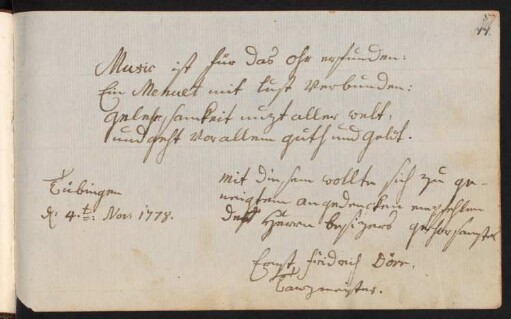 44
Music ist für das ohr erfunden:
Ein Menuet mit lust verbunden:
gelehrsamkeit nuzt aller welt,
und geht vor allem guth und gelt.
Tübingen
d. 4.te: Nov. 1778.
mit diesem wollte sich zu ge-
neigtem angedencken empfehlen
deß Herrn besizers gehorsamster
Ernst fridrich Dörr,
Tanzmeister.